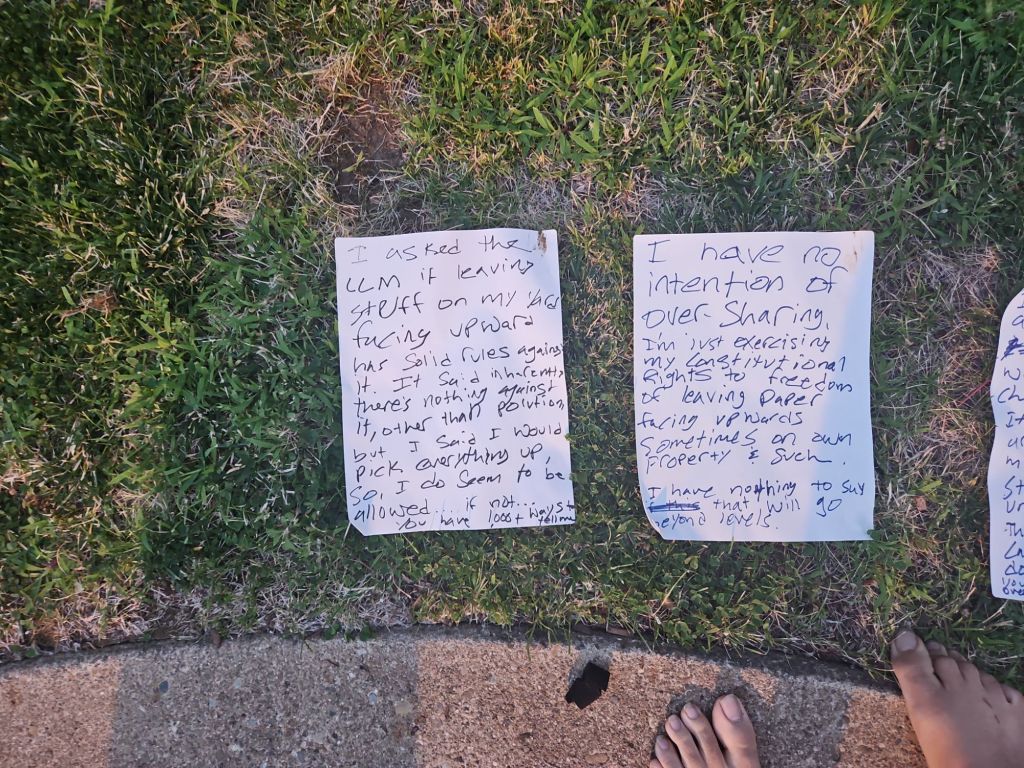 I asked the
LLM if leaving
stuff on my yard
facing upward
has solid rules against
it. It said inharently
there's nothing against
it, other than polution,
but I said I would
pick everything up.
So, I do seem to be
allowed.... if not....
You have 1000+ ways to
tell me
I have no
intention of
over-sharing.
I'm just exercising
my Constitutional
Rights to freedom
of leaving paper
facing upwards
sometimes on own
Property & such.
I have nothing to say
that will go
beyond levels.